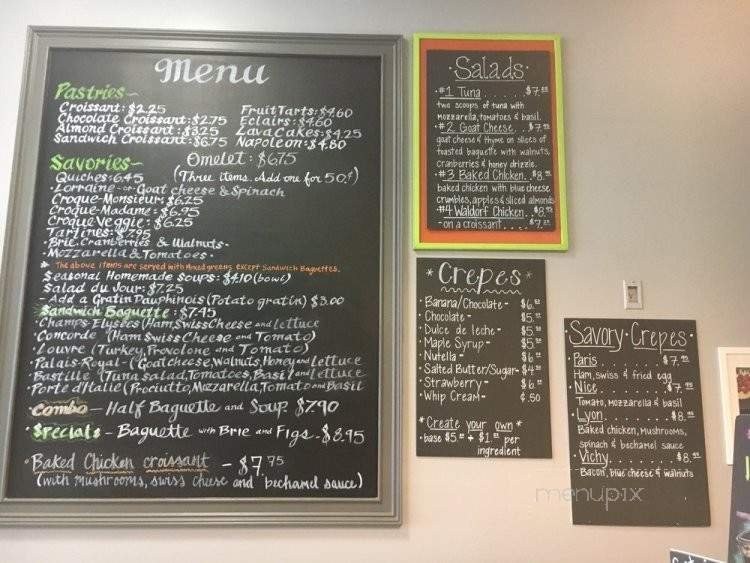 Menu
Pastries~
Croissant: $2.25
Chocolate Croissant: $2.75
Almond Croissant: $3.25
Sandwich Croissant: $6.75
Fruit Tarts: $4.60
Eclairs: $4.60
Lava Cakes: $4.25
Napoleon: $4.80
Savories~
Omelet: $6.75
(Three items. Add one for 50¢)
Quiches: 6.45
·Lorraine -or- Goat cheese & Spinach
Croque-Monsieur: $6.25
Croque-Madame: $6.95
Croque Veggie: $6.25
Tartines: $7.95
·Brie, Cranberries & Walnuts·
·Mozzarella & Tomatoes·
The above items are served with Mixed greens, except Sandwich Baguettes.
Seasonal Homemade Soups: $4.10 (bowl)
Salad du Jour: $7.25
Add a Gratin Dauphinois (Potato gratin) $3.00
Sandwich Baguette: $7.45
·Champs-Elysees (Ham, Swiss Cheese and lettuce
·Concorde (Ham Swiss Cheese and Tomato)
·Louvre (Turkey, Provolone and Tomato)
·Palais-Royal-(Goat cheese, Walnuts, Honey and lettuce
·Bastille (Tuna salad, Tomatoes, Basil and lettuce
·Porte d'Italie (Prociutto, Mozzarella, Tomato and Basil
·Combo - Half Baguette and Soup $7.90
·Specials - Baguette with Brie and Figs - $8.95
·Baked Chicken croissant - $7.75
(with mushrooms, swiss cheese and bechamel sauce)
·Salads·
·#1 Tuna . . . . . $7.
two scoops of tuna with
mozzarella, tomatoes & basil.
·#2 Goat Cheese. . $7.
goat cheese & thyme on slices of
toasted baguette with walnuts,
cranberries & honey drizzle.
·#3 Baked Chicken. .$8.
baked chicken with blue cheese
crumbles, apples & sliced almonds
·#4 Waldorf Chicken. .$8.
-on a croissant. . . . $7.
*Crepes*
·Banana/Chocolate - $6.
·Chocolate - $5.
·Dulce de leche - $5.
·Maple Syrup - $5.
·Nutella - $6.
·Salted Butter/Sugar - $4.
·Strawberry - $6.
·Whip Cream - ¢.50
*Create your own*
·base $5. + $1. per
ingredient
Savory·Crepes
·Paris. . . . . . . $7.
Ham, swiss & fried egg
·Nice. . . . . . . $7.
Tomato, Mozzarella & basil
·Lyon. . . . . . . $8.
Baked chicken, mushrooms,
spinach & bechamel sauce
·Vichy. . . . . . . $8.
Bacon, blue cheese & walnuts
menupix